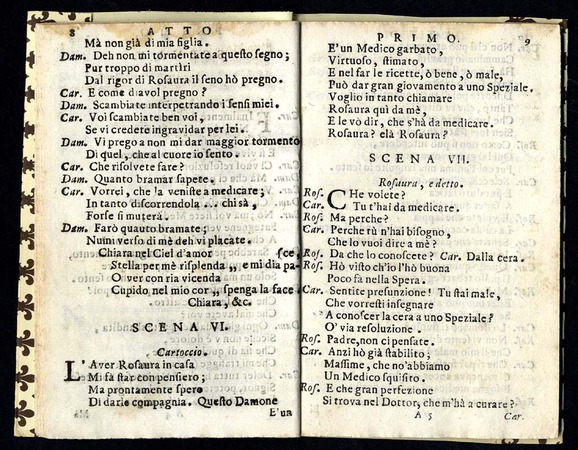 8 ATTO
Mà non già di mia figlia.
Dam. Deh non mi tormentate a questo segno;
Pur troppo di martìri
Dal rigor di Rosaura il seno hò pregno.
Car. E come diavol pregno?
Dam. Scambiate interpetrando i sensi miei.
Car. Voi scambiate ben voi,
Se vi credete ingravidar per lei.
Dam. Vi prego a non mi dar maggior tormento
Di quel, che al cuore io sento.
Car. Che risolvete fare?
Dam. Quanto bramar sapete.
Car. Vorrei, che la veniste a medicare;
In tanto discorrendola... chi sà,
Forse si muterà.
Dam. Farò quauto bramate;
Numi verso di mè deh vi placate.
Chiara nel Ciel d'amor [sce,
Stella per mè risplenda „ e mi dia pa-
O ver con ria vicenda
Cupido nel mio cor „ spenga la face.
Chiara, &c.
SCENA VI.
Cartoccio.
L'Aver Rosaura in casa
Mi fà star con pensiero;
Ma prontamente spero
Di darle compagnia. Questo Damone
E'un
PRIMO. 9
E'un Medico garbato,
Virtuoso, stimato,
E nel far le ricette, ò bene, ò male,
Può dar gran giovamento a uno Speziale.
Voglio in tanto chiamare
Rosaura quì da mè,
E le vò dir, che s'hà da medicare.
Rosaura? elà Rosaura?
SCENA VII.
Rosaura, e detto.
Ros. CHe volete?
Car. Tu t'hai da medicare.
Ros. Ma perche?
Car. Perche tù n'hai bisogno,
Che lo vuoi dire a mè?
Ros. Da che lo conoscere? Car. Dalla cera.
Ros. Hò visto ch'io l'hò buona
Poco fà nella Spera.
Car. Sentite presunzione! Tu stai male,
Che vorresti insegnare
A conoscer la cera a uno Speziale?
O' via resoluzione.
Ros. Padre, non ci pensate.
Car. Anzi hò già stabilito;
Massime, che no'abbiamo
Un Medico squisito.
Ros. E che gran perfezione
Si trova nel Dottor, che m'hà a curare?
A 5 Car.